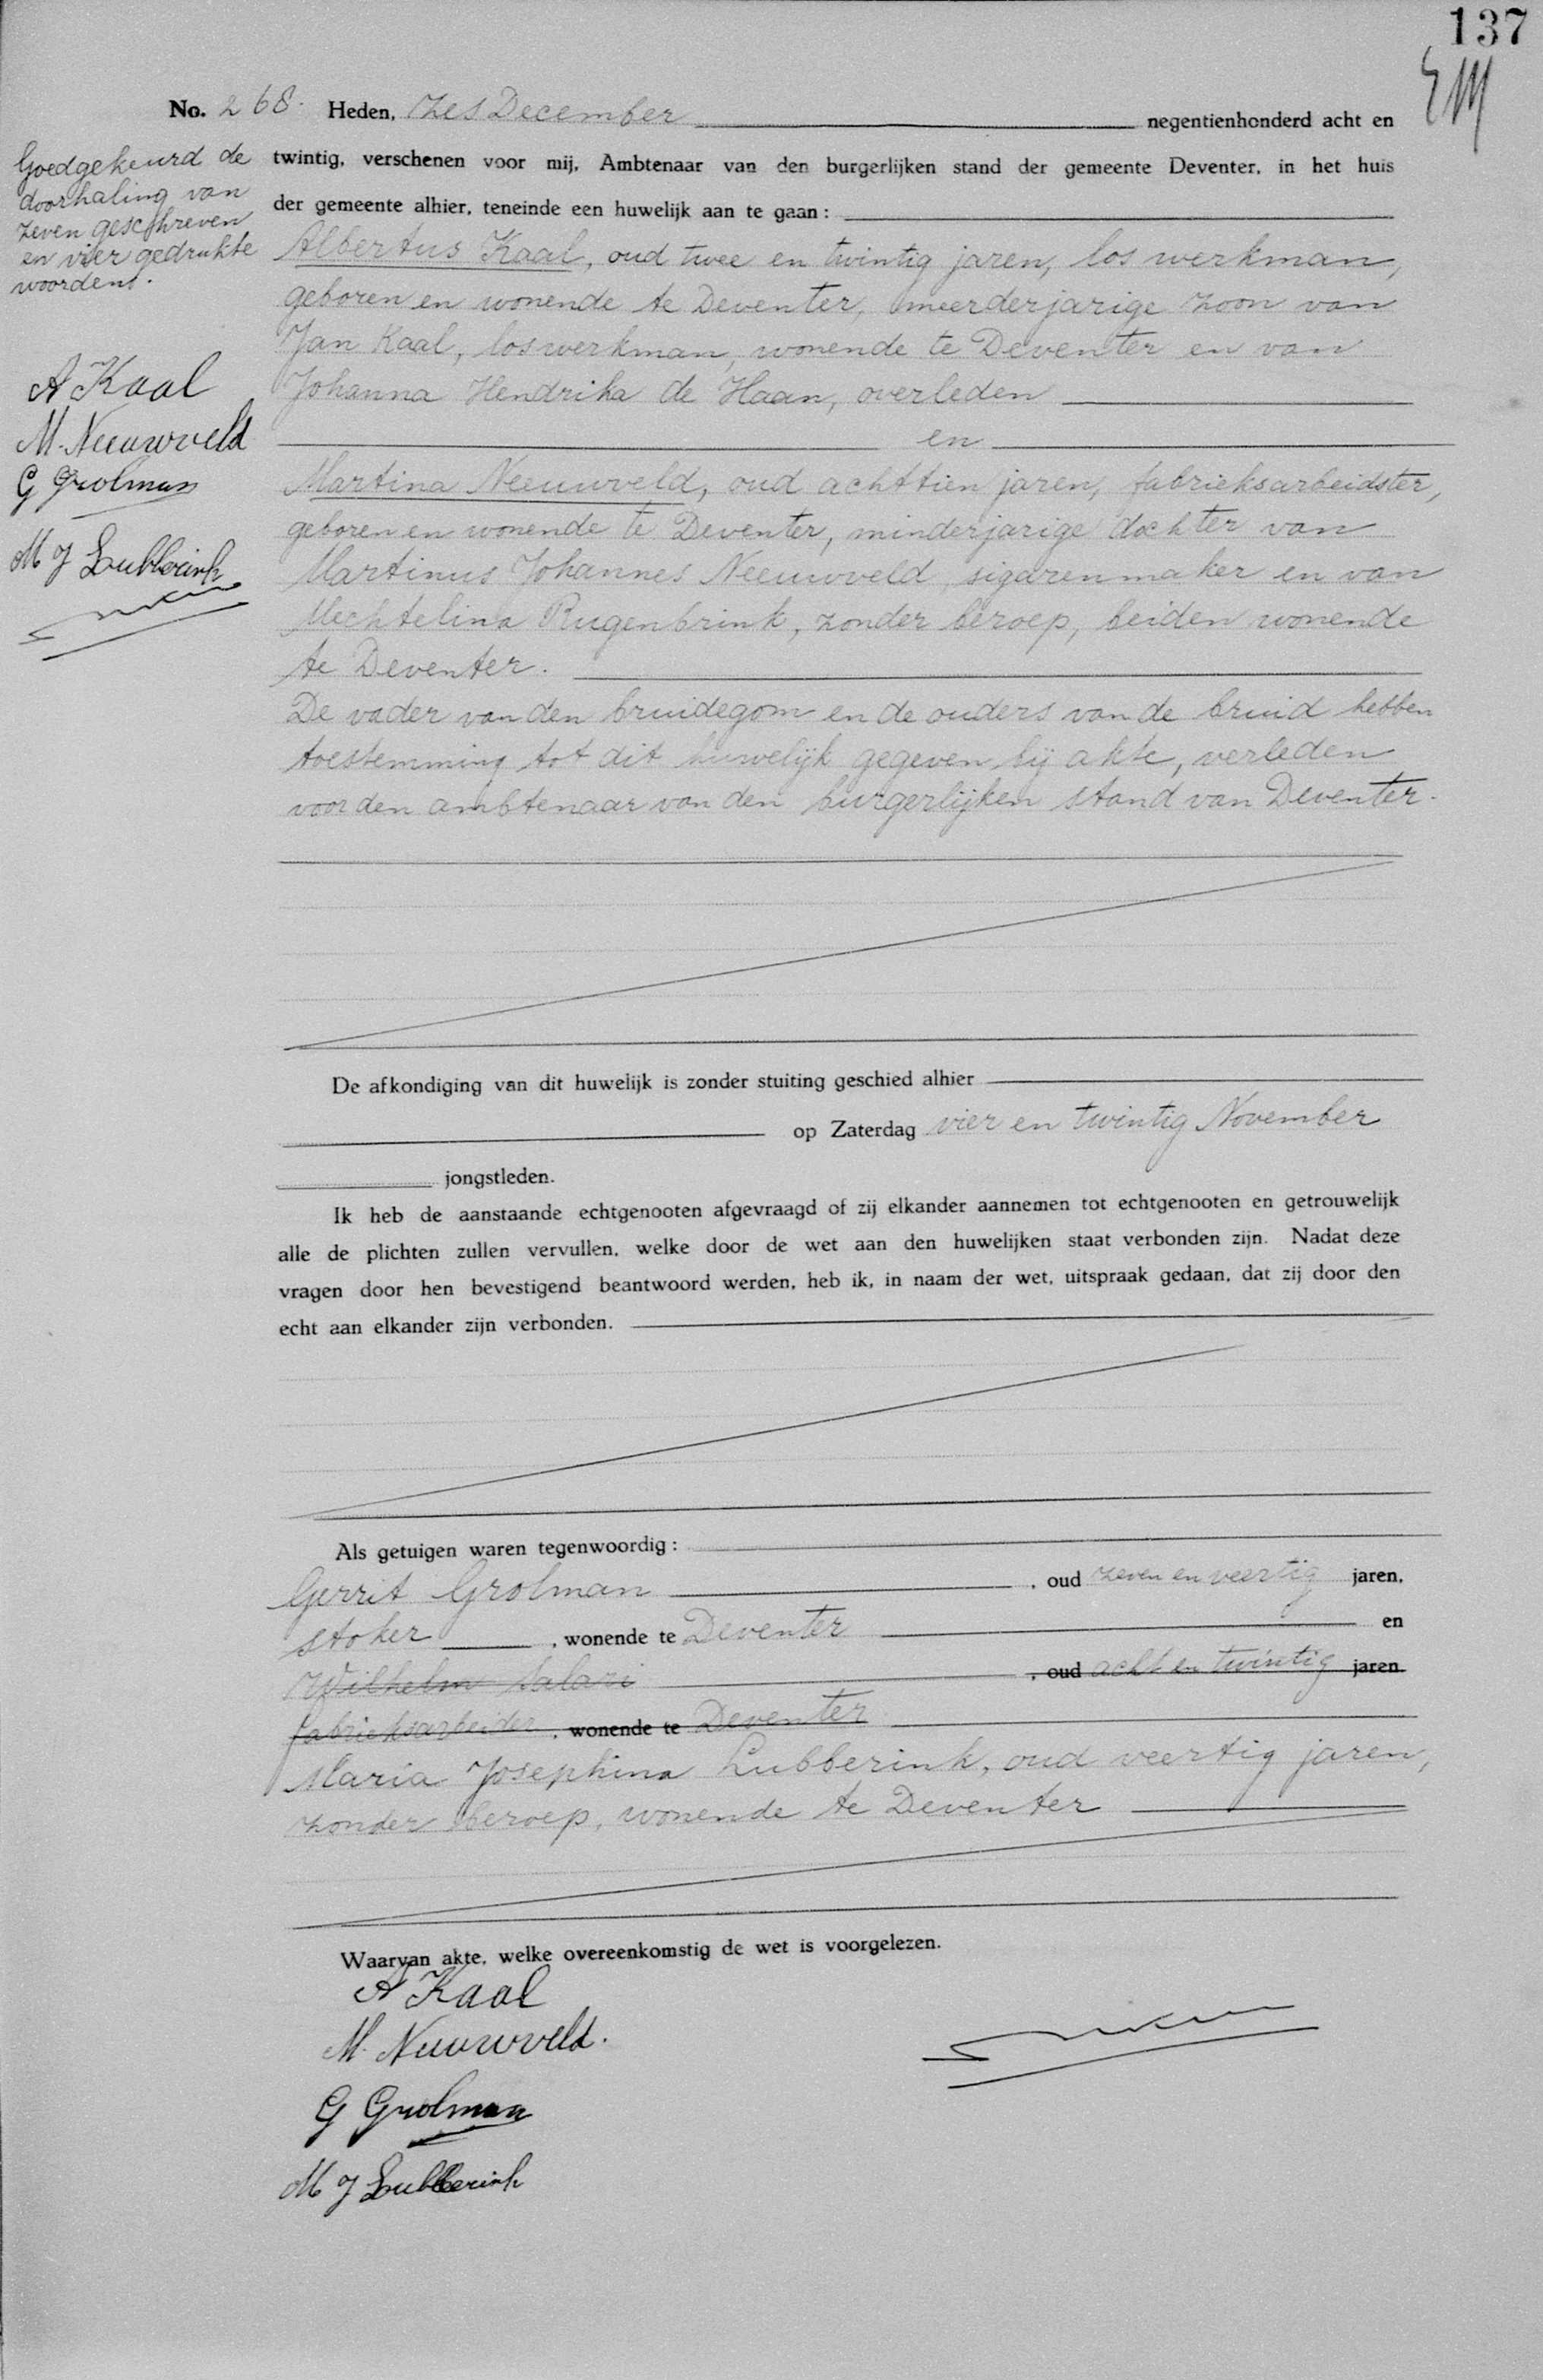 137
No. 268. Heden, zes December negentienhonderd acht en
twintig, verschenen voor mij, Ambtenaar van den burgerlijken stand der gemeente Deventer, in het huis
der gemeente alhier, teneinde een huwelijk aan te gaan:
Albertus Kaal, oud twee en twintig jaren, los werkman,
geboren en wonende te Deventer, meerderjarige zoon van
Jan Kaal, los werkman, wonende te Deventer en van
Johanna Hendrika de Haan, overleden
en
Martina Neeuwveld, oud achttien jaren, fabrieksarbeidster,
geboren en wonende te Deventer, minderjarige dochter van
Martinus Johannes Neeuwveld, sigarenmaker en van
Mechtelina Rugenbrink, zonder beroep, beiden wonende
te Deventer.
De vader van den bruidegom en de ouders van de bruid hebben
toestemming tot dit huwelijk gegeven bij akte, verleden
voor den ambtenaar van den burgerlijken stand van Deventer.
Goedgekeurd de
doorhaling van
zeven geschreven
en vier gedrukte
woorden.
A Kaal
M. Neeuwveld
G Grolman
M J Lubberink
De afkondiging van dit huwelijk is zonder stuiting geschied alhier
op Zaterdag vier en twintig November
jongstleden.
Ik heb de aanstaande echtgenooten afgevraagd of zij elkander aannemen tot echtgenooten en getrouwelijk
alle de plichten zullen vervullen, welke door de wet aan den huwelijken staat verbonden zijn. Nadat deze
vragen door hen bevestigend beantwoord werden, heb ik, in naam der wet, uitspraak gedaan, dat zij door den
echt aan elkander zijn verbonden.
Als getuigen waren tegenwoordig:
Gerrit Grolman, oud zeven en veertig jaren,
stoker, wonende te Deventer en
Wilhelm Salari, oud acht en twintig jaren
fabrieksarbeider, wonende te Deventer
Maria Josephina Lubberink, oud veertig jaren,
zonder beroep, wonende te Deventer
Waarvan akte, welke overeenkomstig de wet is voorgelezen.
A Kaal
M. Neeuwveld.
G Grolman
M J Lubberink